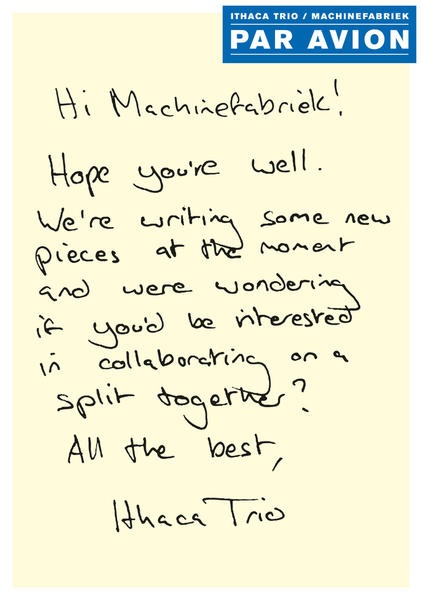 ITHACA TRIO / MACHINEFABRIEK
PAR AVION
Hi Machinefabriek!
Hope you're well.
We're writing some new
pieces at the moment
and were wondering
if you'd be interested
in collaborating on a
split together?
All the best,
Ithaca Trio